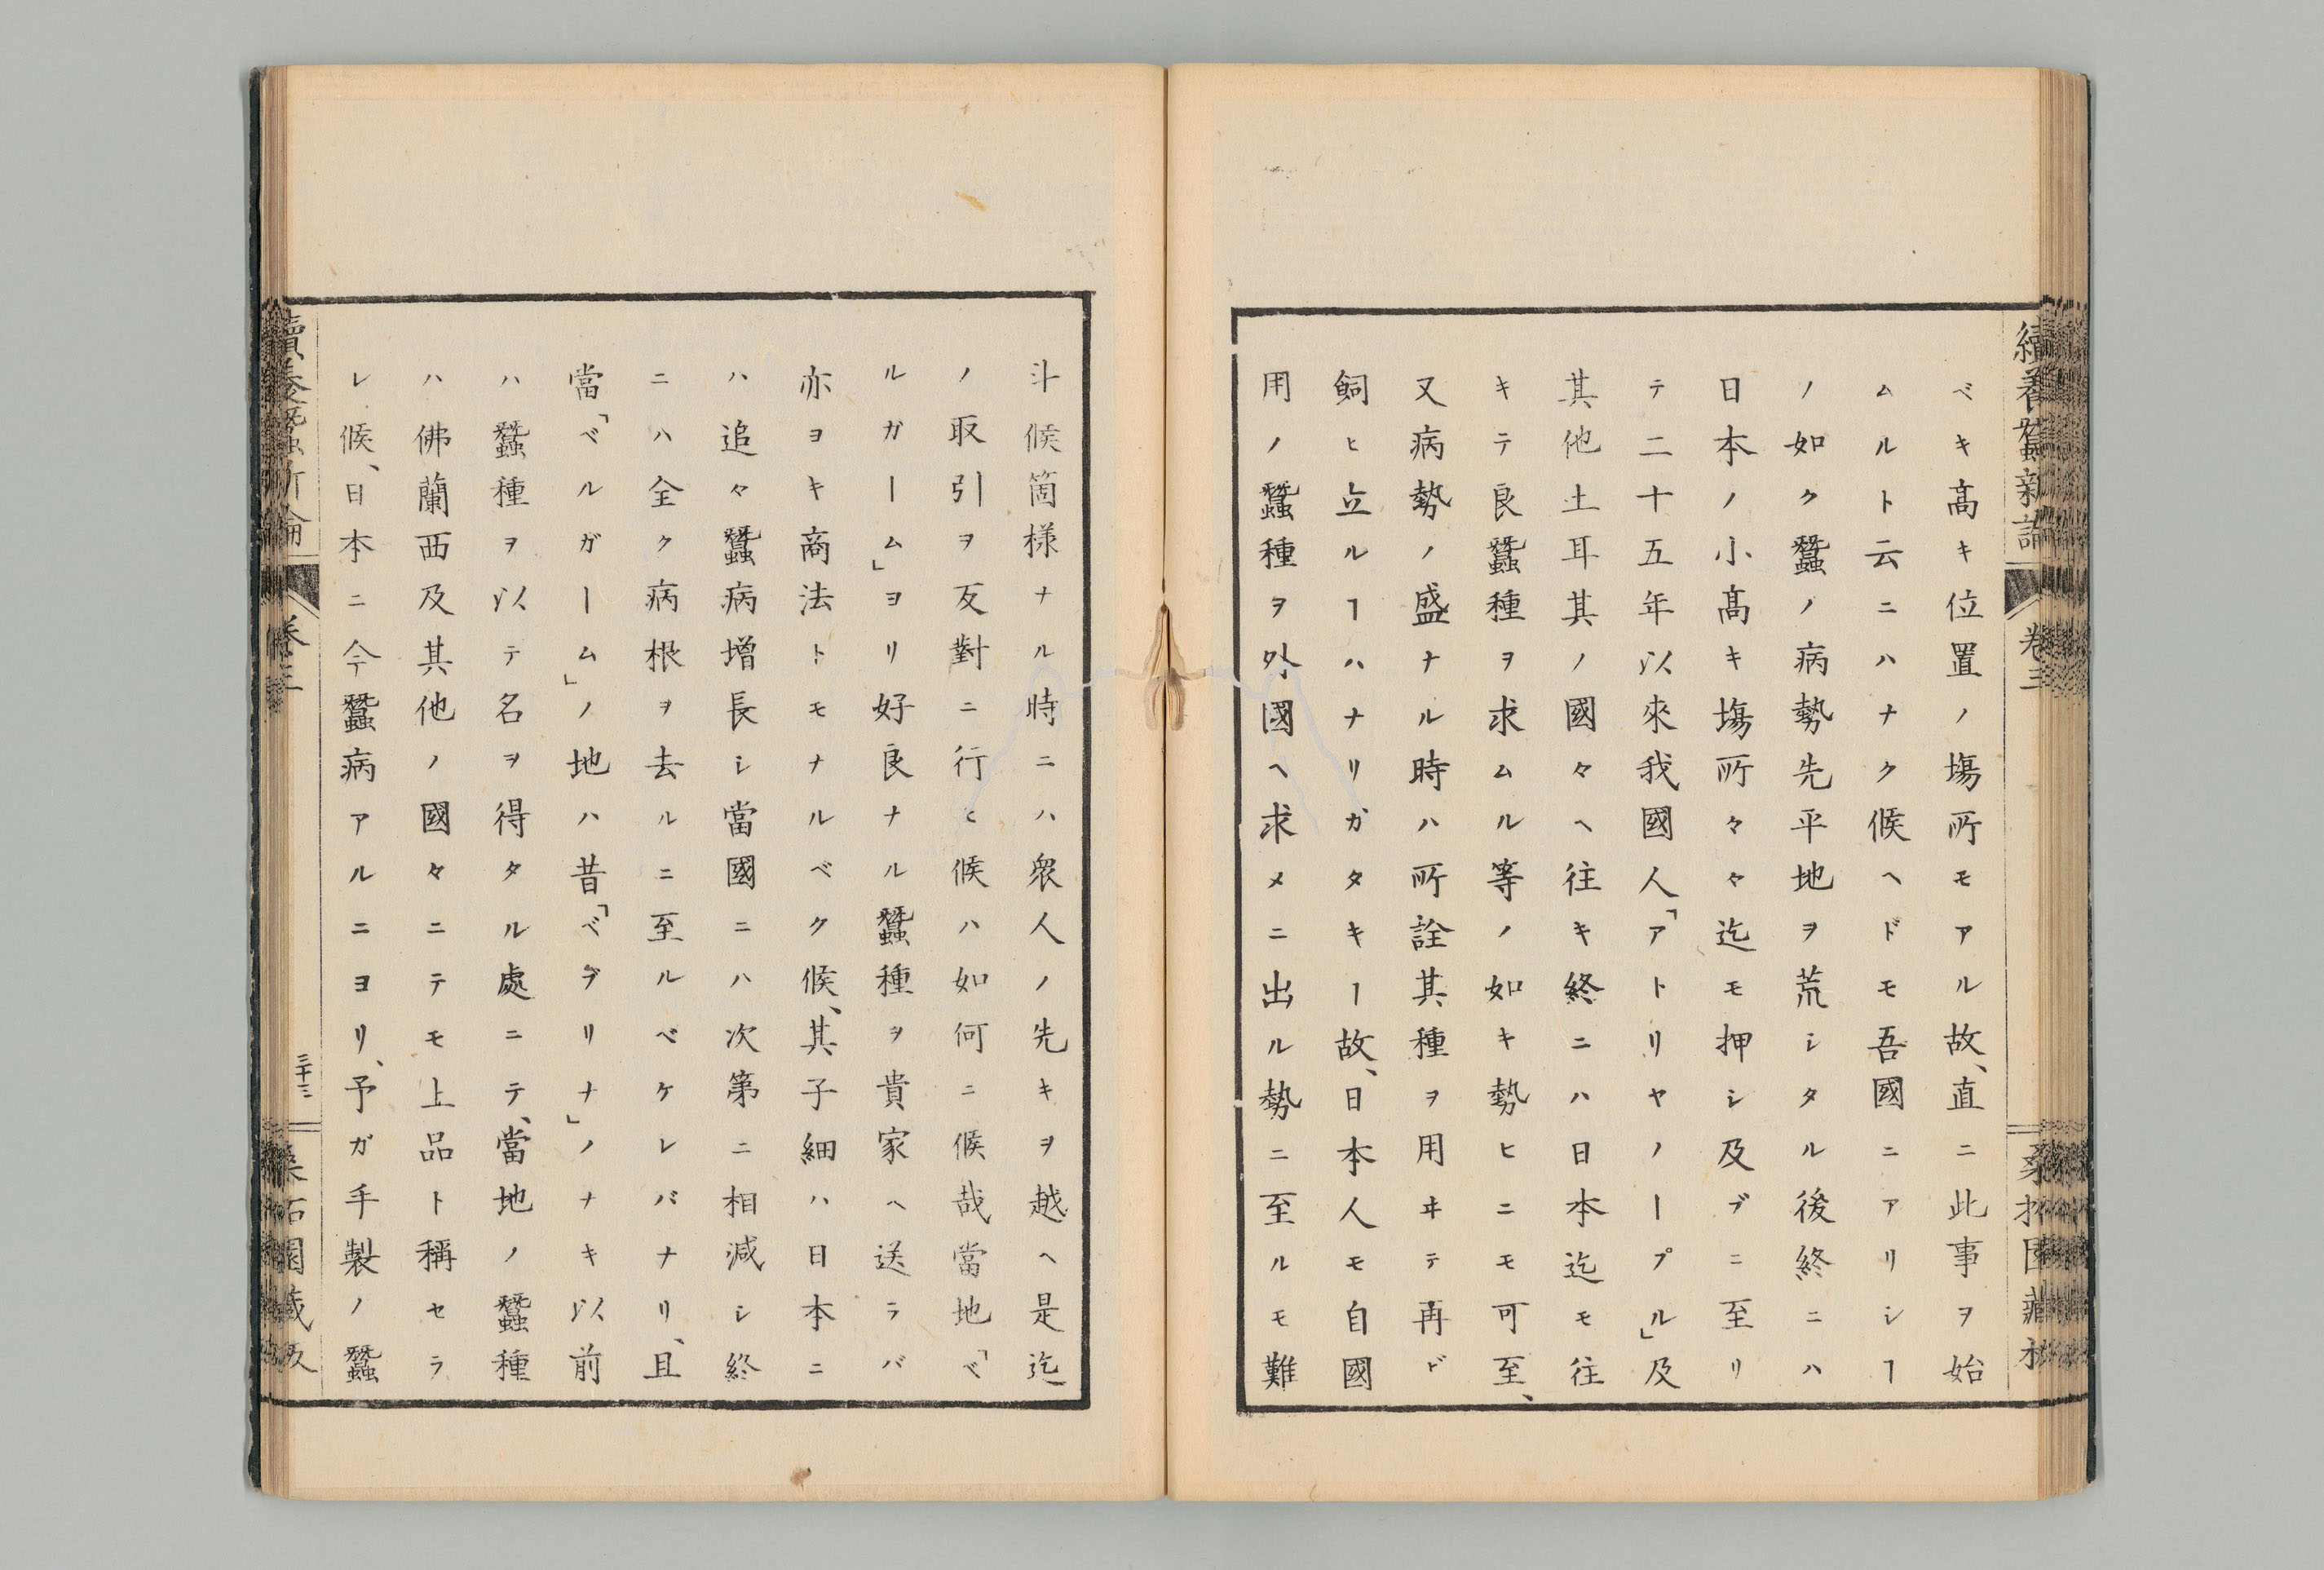 續養蠶新論
卷三
ベキ高キ位置ノ塲所モアル故、直ニ此事ヲ始
ムルト云ニハナク候ヘドモ吾國ニアリシヿ
ノ如ク蠶ノ病勢先平地ヲ荒シタル後終ニハ
日本ノ小高キ塲所々々迄モ押シ及ブニ至リ
テ二十五年以來我國人「アトリヤノープル」及
其他土耳其ノ國々ヘ往キ終ニハ日本迄モ往
キテ良蠶種ヲ求ムル等ノ如キ勢ヒニモ可至、
又病勢ノ盛ナル時ハ所詮其種ヲ用ヰテ再ビ
飼ヒ立ルヿハナリガタキヿ故、日本人モ自國
用ノ蠶種ヲ外國ヘ求メニ出ル勢ニ至ルモ難
斗候箇樣ナル時ニハ衆人ノ先キヲ越ヘ是迄
ノ取引ヲ反對ニ行ヒ候ハ如何ニ候哉當地「ベ
ルガーム」ヨリ好良ナル蠶種ヲ貴家ヘ送ラバ
亦ヨキ商法トモナルベク候、其子細ハ日本ニ
ハ追々蠶病增長シ當國ニハ次第ニ相減シ終
ニハ全ク病根ヲ去ルニ至ルベケレバナリ、且
當「ベルガーム」ノ地ハ昔「ベブリナ」ノナキ以前
ハ蠶種ヲ以テ名ヲ得タル處ニテ、當地ノ蠶種
ハ佛蘭西及其他ノ國々ニテモ上品ト稱セラ
レ候、日本ニ今蠶病アルニヨリ、予ガ手製ノ蠶
續養蠶新論
卷三
三十三